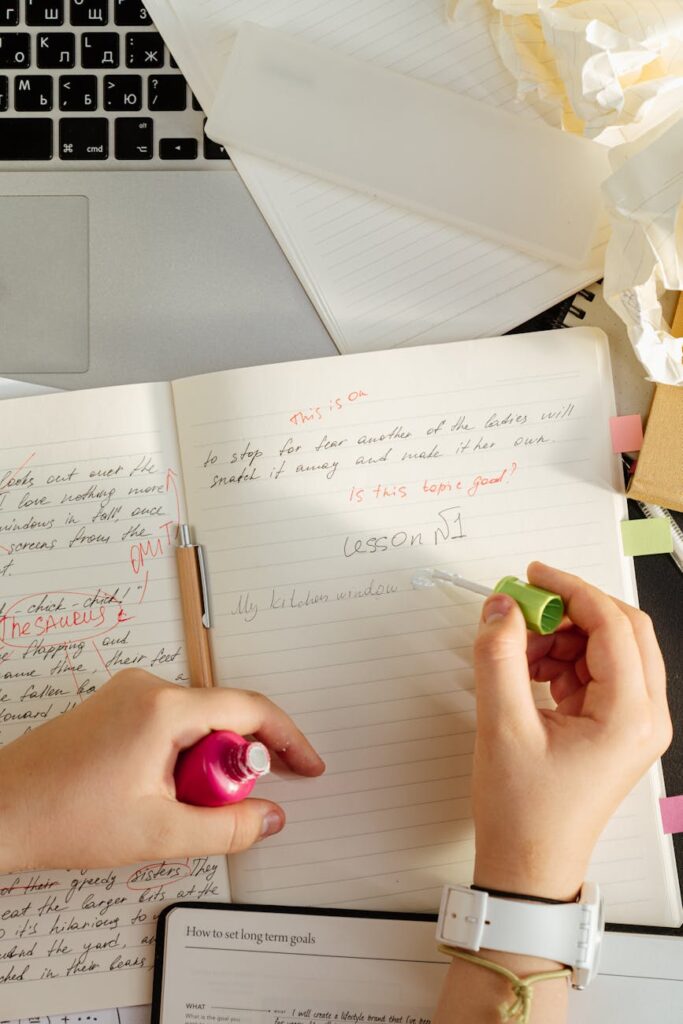 Г
Ш
Щ
З
О
Л
Д
Ж
Ь
Б
Ю
alt
cmd
looks out over the
I love nothing more
windows in fall, once
screens from the
OMIT
-chick-chick!"
Thesaurus
flapping and
same time, their feet
fallen
toward the
of their greedy sisters! They
eat the larger bits at the
it's hilarious to
the yard, as
in their beaks,
This is on
to stop for fear another of the ladies will
snatch it away and make it her own.
Is this topic good?
Lesson №1
My kitchen window
How to set long term goals
WHAT
What is the goal you
I will create a lifestyle brand that I've been